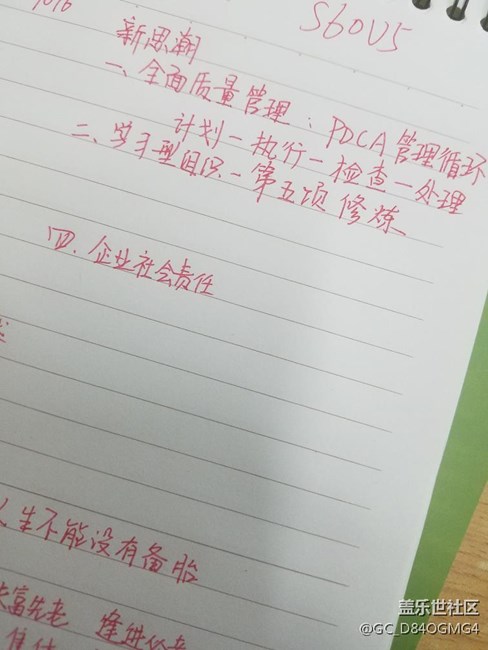 S60U5
新思潮
一、全面质量管理：PDCA管理循环
计划—执行—检查—处理
二、学习型组织—第五项修炼
四.企业社会责任
人生不能没有备胎
富先老
盖乐世社区
@GC_D84OGMG4